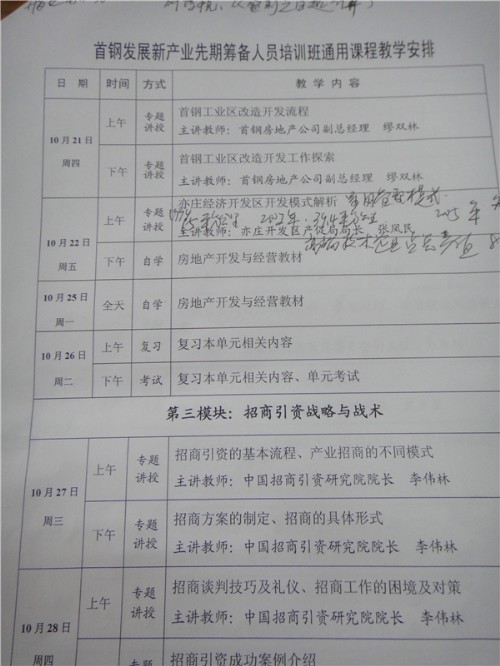 首钢发展新产业先期筹备人员培训班通用课程教学安排
日 期 时间 方式 教 学 内 容
10月21日
周四
上午 专题
讲授
首钢工业区改造开发流程
主讲教师：首钢房地产公司副总经理 缪双林
下午 专题
讲授
首钢工业区改造开发工作探索
主讲教师：首钢房地产公司副总经理 缪双林
10月22日
周五
上午 专题
讲授
亦庄经济开发区开发模式解析
主讲教师：亦庄开发区产促局局长 张凤民
下午 自学 房地产开发与经营教材
10月25日
周一
全天 自学 房地产开发与经营教材
10月26日
周二
上午 复习 复习本单元相关内容
下午 考试 复习本单元相关内容、单元考试
第三模块：招商引资战略与战术
10月27日
周三
上午 专题
讲授
招商引资的基本流程、产业招商的不同模式
主讲教师：中国招商引资研究院院长 李伟林
下午 专题
讲授
招商方案的制定、招商的具体形式
主讲教师：中国招商引资研究院院长 李伟林
10月28日
周四
上午 专题
讲授
招商谈判技巧及礼仪、招商工作的困境及对策
主讲教师：中国招商引资研究院院长 李伟林
专题
招商引资成功案例介绍